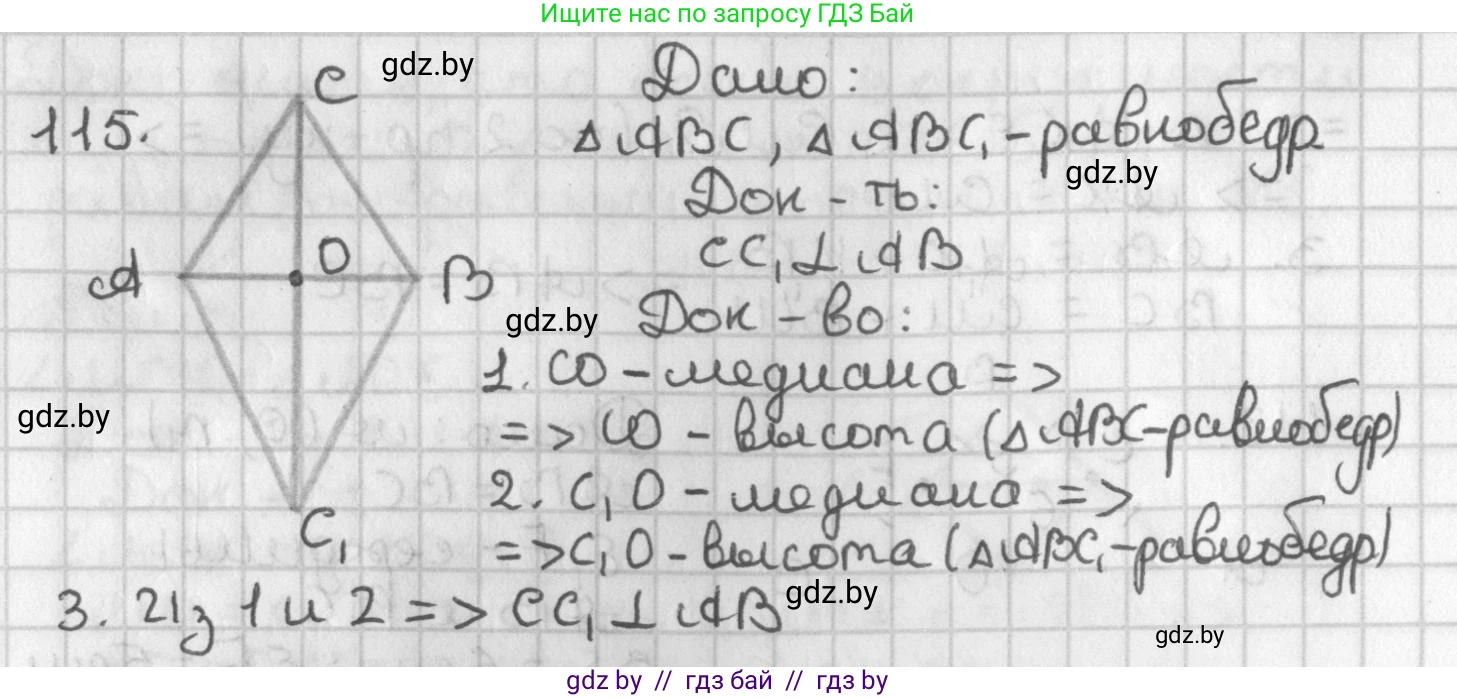 Ищите нас по запросу ГДЗ Бай
115.
C
gdz.by
Дано:
△ABC, △ABC₁ - равнобедр
gdz.by
Док - ть:
CC₁⊥AB
A
O
B
gdz.by
Док - во:
1. CO - медиана =>
gdz.by
=> CO - высота (△ABC-равнобедр)
2. C₁O - медиана =>
C₁
=> C₁O - высота (△ABC₁-равнобедр)
3. Из 1 и 2 => CC₁⊥AB
gdz.by
gdz.by
gdz.by // гдз бай // гдз by